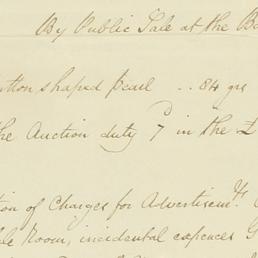 By Public Sale at the
utton shaped pearl .. 84 grs
the Auction duty 7 in the £
tion of Charges for Advertisemts.
le Room, incidental expences